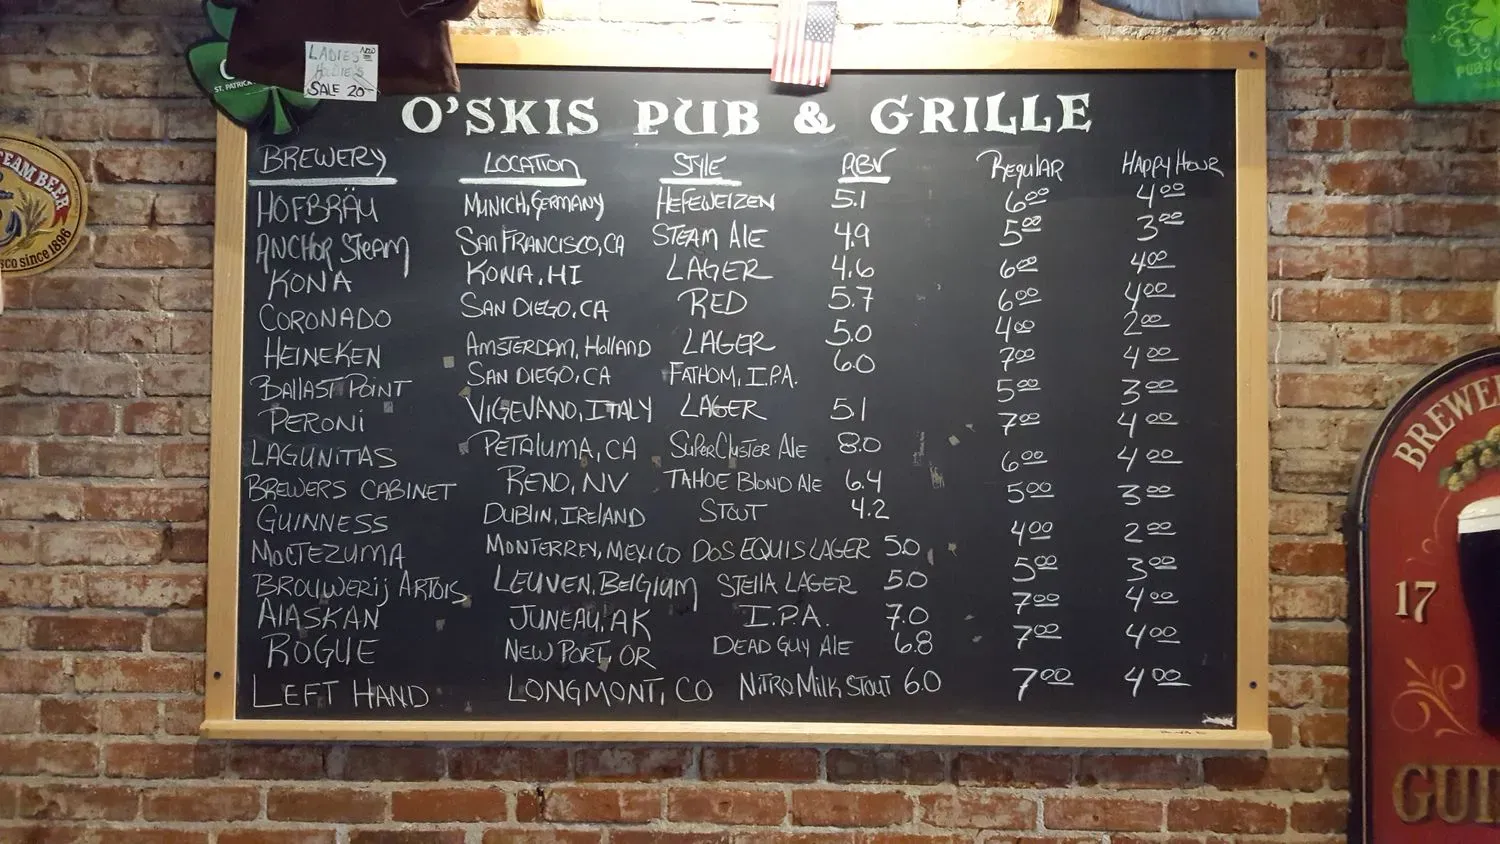 LADIES NEW
HOODIE'S
SALE 20-
ST. PATRICK
O'SKIS PUB & GRILLE
BREWERY LOCATION STYLE ABV REGULAR HAPPY HOUR
HOFBRÄU MUNICH, GERMANY HEFEWEIZEN 5.1 6.00 4.00
ANCHOR STEAM SAN FRANCISCO, CA STEAM ALE 4.9 5.00 3.00
KONA KONA, HI LAGER 4.6 6.00 4.00
CORONADO SAN DIEGO, CA RED 5.7 6.00 4.00
HEINEKEN AMSTERDAM, HOLLAND LAGER 5.0 4.00 2.00
BALLAST POINT SAN DIEGO, CA FATHOM, I.P.A. 6.0 7.00 4.00
PERONI VIGEVANO, ITALY LAGER 5.1 5.00 3.00
LAGUNITAS PETALUMA, CA SUPERCLUSTER ALE 8.0 7.00 4.00
BREWERS CABINET RENO, NV TAHOE BLOND ALE 6.4 6.00 4.00
GUINNESS DUBLIN, IRELAND STOUT 4.2 5.00 3.00
MOCTEZUMA MONTERREY, MEXICO DOS EQUIS LAGER 5.0 4.00 2.00
BROUWERIJ ARTOIS LEUVEN, BELGIUM STELLA LAGER 5.0 5.00 3.00
ALASKAN JUNEAU, AK I.P.A. 7.0 7.00 4.00
ROGUE NEW PORT, OR DEAD GUY ALE 6.8 7.00 4.00
LEFT HAND LONGMONT, CO NITRO MILK STOUT 6.0 7.00 4.00
TEAM BEER
SCO since 1896
PUB & G
BREWE
17
GUI